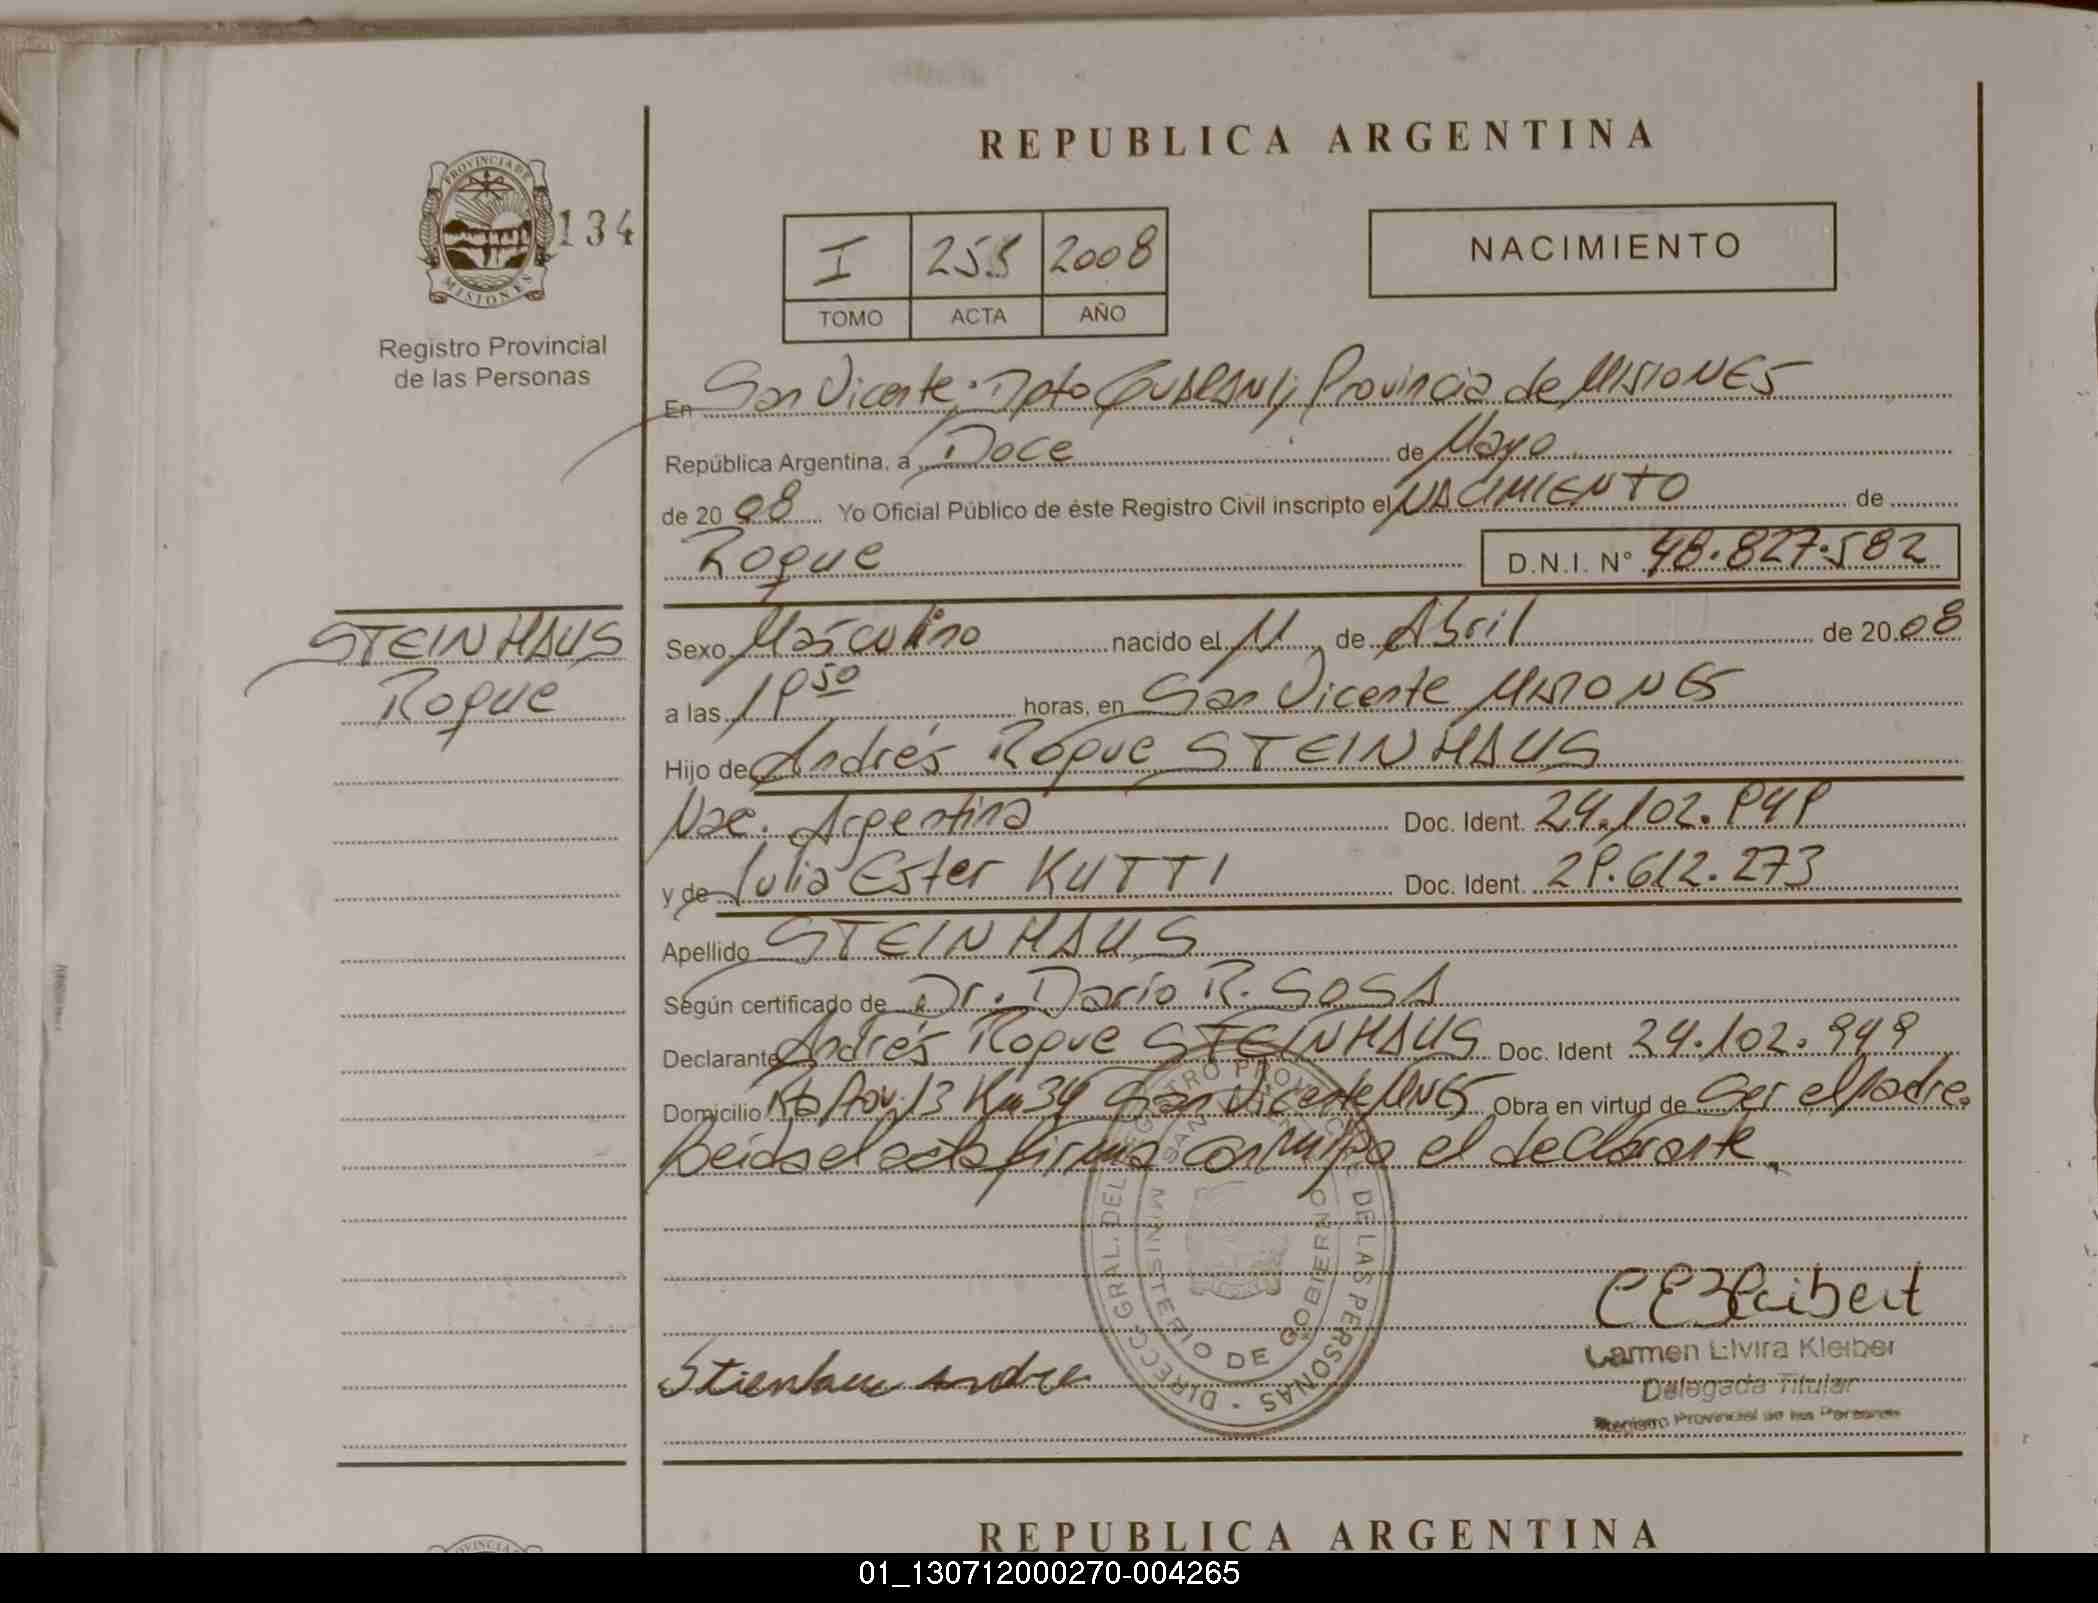 REPUBLICA ARGENTINA
PROVINCIA DE
MISIONES
134
Registro Provincial
de las Personas
I 255 2008
TOMO ACTA AÑO
NACIMIENTO
En San Vicente, Dpto GUARANI, Provincia de MISIONES
República Argentina, a Doce de Mayo
de 2008 Yo Oficial Público de éste Registro Civil inscripto el NACIMIENTO de
Roque D.N.I. Nº 48.827.582
STEINHAUS
Roque
Sexo Masculino nacido el 11 de Abril de 2008
a las 19 50 horas, en San Vicente MISIONES
Hijo de Andrés Roque STEINHAUS
Nac. Argentina Doc. Ident. 24.102.949
y de Julia Ester KUTTI Doc. Ident. 29.612.273
Apellido STEINHAUS
Según certificado de Dr. Darío R. SOSA
Declarante Andrés Roque STEINHAUS Doc. Ident 24.102.949
Domicilio Km 34 San Vicente Obra en virtud de Ser el padre.
Leida el acta firma conmigo el declarante.
DIRECC. GRAL. DEL REGISTRO PROVINCIAL DE LAS PERSONAS
MINISTERIO DE GOBIERNO
Carmen Elvira Kleiber
Delegada Titular
Registro Provincial de las Personas
REPUBLICA ARGENTINA
01_130712000270-004265